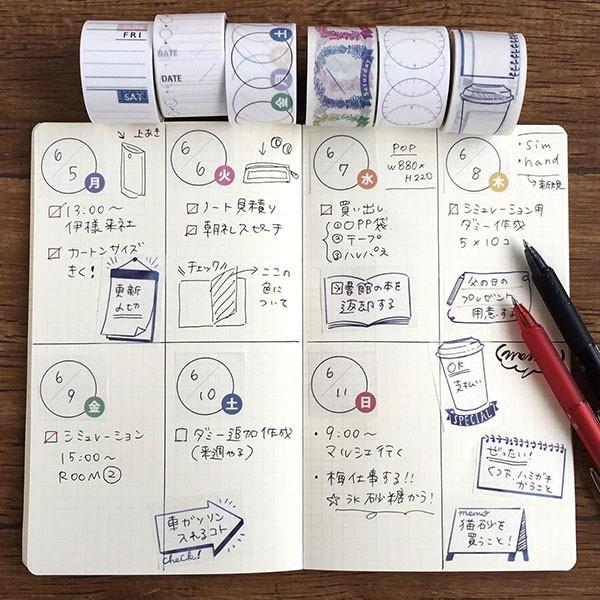 FRI
SAT
DATE
DATE
土
金
Saturday
6
5
月
上あき
13:00〜
伊様来社
カートンサイズ
きく!
更新
〆切
6
6
火
ノート見積り
朝礼スピーチ
チェック
ここの
色に
ついて
6
7
水
POP
W880×
H220
買い出し
①OPP袋
②テープ
③ハレパネ
図書館の本を
返却する
6
8
木
・Sim
・hand
シミュレーション用
ダミー作成
5×10コ
父の日の
プレゼント
用意する
6
9
金
シミュレーション
15:00〜
ROOM②
6
10
土
ダミー追加作成
(来週やる)
車ガソリン
入れるコト
check!
6
11
日
・9:00〜
マルシェ行く
・梅仕事する!!
☆氷砂糖かう!
OK
支払い
SPECIAL
ぜったい!
くつ下、ハミガキ
かうこと
memo
猫砂を
買うこと!